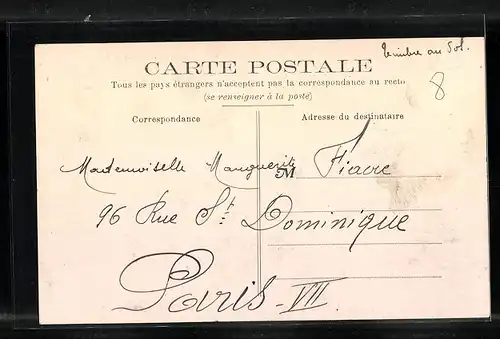 Timbre au Dos.
CARTE POSTALE
8
Tous les pays étrangers n'acceptent pas la correspondance au recto
(se renseigner à la poste)
Correspondance
Adresse du destinataire
Mademoiselle Marguerite Fiacre
M
96 Rue St Dominique
Paris-VII